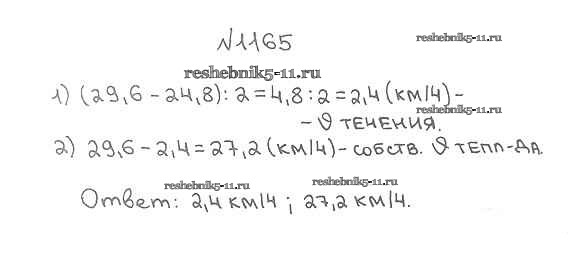 №1165
reshebnik5-11.ru
reshebnik5-11.ru
1) (29,6-24,8):2=4,8:2=2,4(км/ч)-
reshebnik5-11.ru
- υ течения.
2) 29,6-2,4=27,2(км/ч)-собств. υ тепл-да.
reshebnik5-11.ru
reshebnik5-11.ru
Ответ: 2,4 км/ч; 27,2 км/ч.